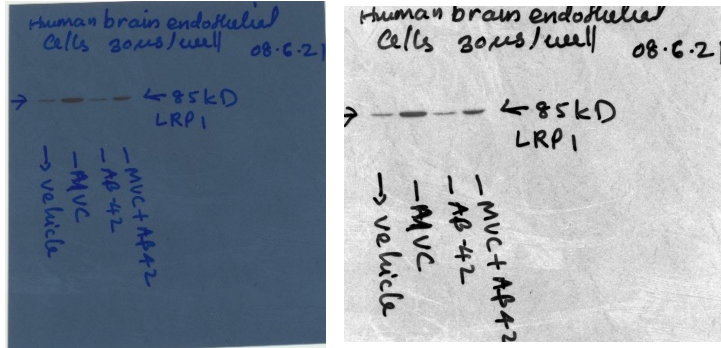 Human brain endothelial
Cells 30ug/well 08.6.21
→ ← 85kD
LRP1
→ vehicle
– MVC
– Aβ-42
– MVC + Aβ42
Human brain endothelial
Cells 30ug/well 08.6.21
→ ← 85kD
LRP1
→ vehicle
– MVC
– Aβ-42
– MVC + Aβ42